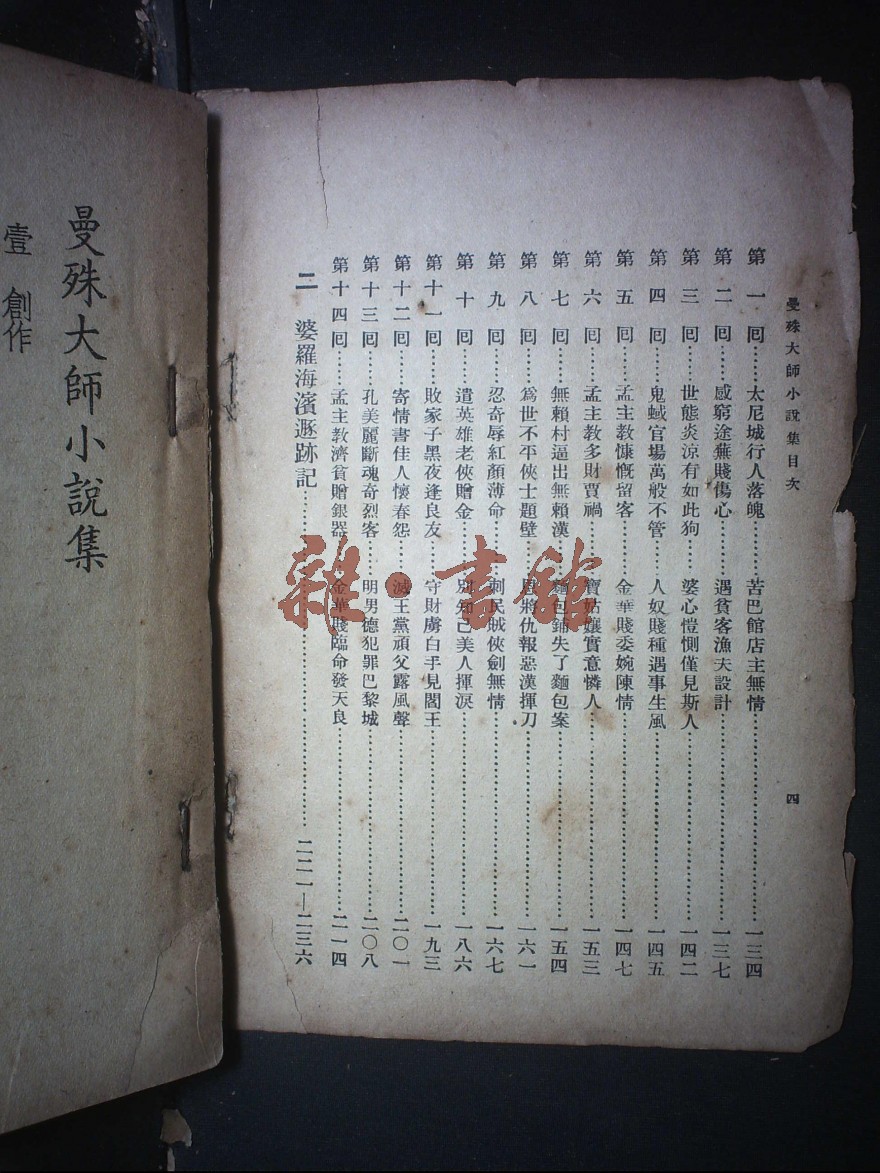 曼殊大師小說集目次
四
第一囘……太尼城行人落魄……苦巴館店主無情……一三四
第二囘……感窮途蕪賤傷心……遇貧客漁夫設計……一三七
第三囘……世態炎涼有如此狗……婆心愷惻僅見斯人……一四二
第四囘……鬼蜮官場萬般不管……人奴賤種遇事生風……一四五
第五囘……孟主教慷慨留客……金華賤委婉陳情……一四七
第六囘……孟主教多財賈禍……寶姑孃實意憐人……一五三
第七囘……無賴村逼出無賴漢……麵包鋪失了麵包案……一五四
第八囘……爲世不平俠士題壁……恩將仇報惡漢揮刀……一六一
第九囘……忍奇辱紅顏薄命……刺民賊俠劍無情……一六七
第十囘……遣英雄老俠贈金……別知己美人揮淚……一八六
第十一囘……敗家子黑夜逢良友……守財虜白手見閻王……一九三
第十二囘……寄情書佳人懷春怨……滅王黨頑父露風聲……二〇一
第十三囘……孔美麗斷魂奇烈客……明男德犯罪巴黎城……二〇八
第十四囘……孟主教濟貧贈銀器……金華賤臨命發天良……二一四
二 婆羅海濱遯跡記……二二一—二三六
曼殊大師小說集
壹 創作
雜·書館